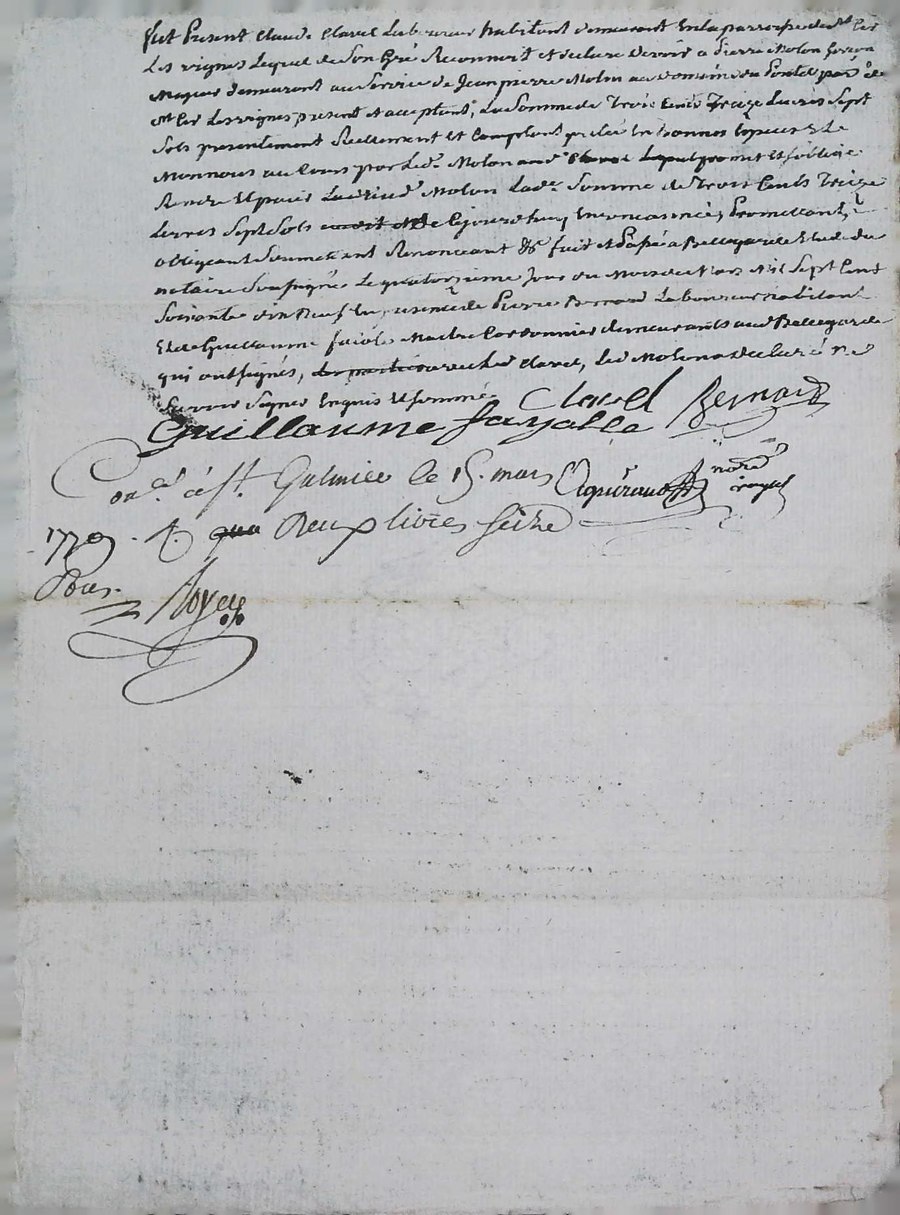 fut Present Claude Clavel Laboureur habitant demeurant En la parroisse de St Cir
Les vignes Lequel de Son Gré Reconnoit et declare devoir a Pierre Molon Garçon
Majeur demeurant au Service de Jean pierre Molon au domaine du par.se de
St Cir Les vignes present et acceptant, La Somme de Trois Cents Treize Livres Sept
Sols presentement Reellement et Comptant prétée En bonnes Especes Et de
Monnoies au Cours par Led. Molon aud. Clavel Lequel promet Et S'oblige
Rendre Et paier Lad. Somme de Trois Cents Treize
Livres Sept Sols Cejourdhuy En Promettant,
obligeant Soumettant Renonceant &c fait et Passé a Bellegarde Etude du
notaire Soussigné Le quatorzieme Jour du Mois de Mars Mil Sept Cent
Soixante dix Neuf En presence de Pierre Bernard Laboureur habitant
Et de Guillaume faiole Maitre Cordonnier demeurants aud Bellegarde
qui ont Signés, avec Led Clavel, Led Molon a declaré ne
Savoir Signer Enquis Et Sommé
Guillaume fayolle Clavel Bernard
Con.lé à St. Galmier le 15. mars notre royal
1779. R. qua Deux livres Seize
Sous.